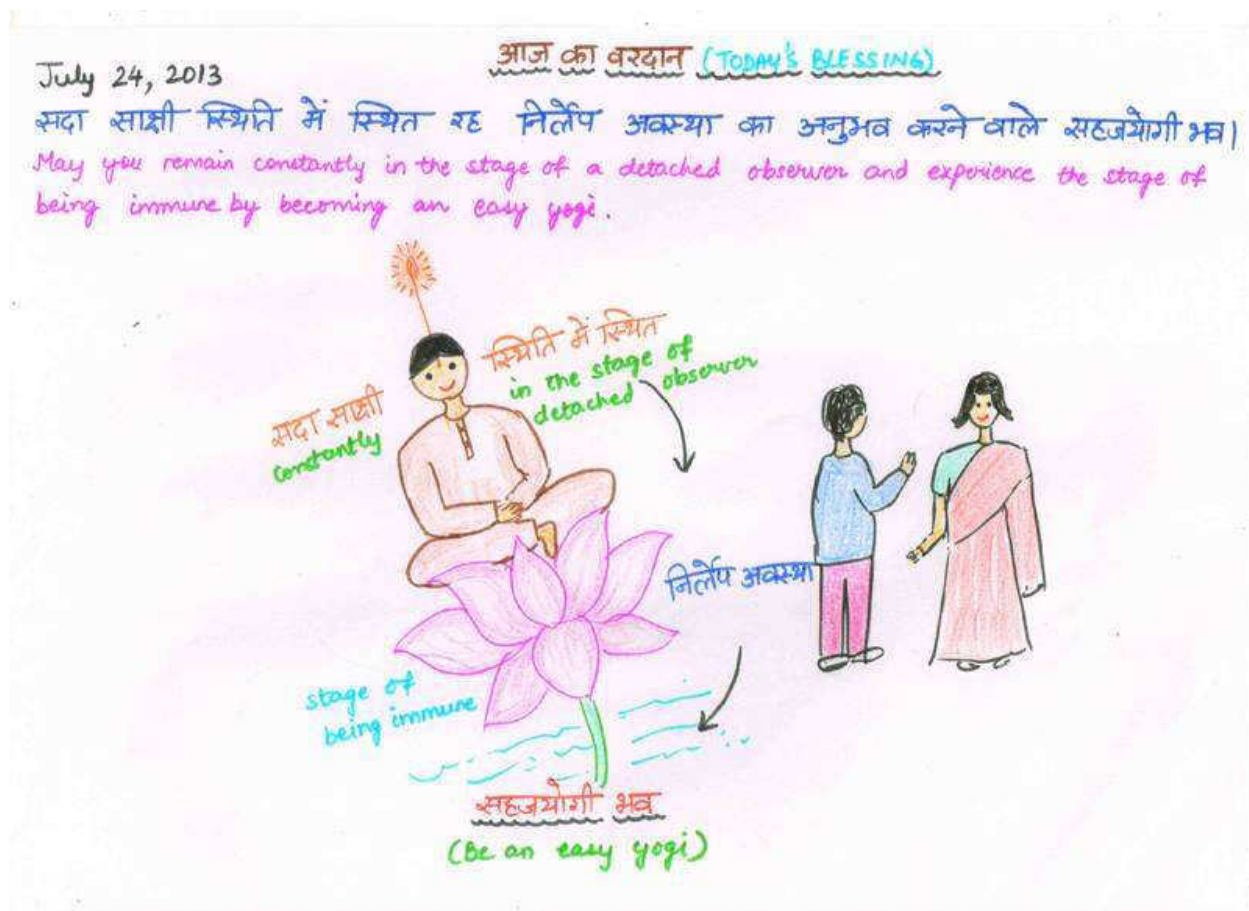 आज का वरदान (TODAY'S BLESSING)
July 24, 2013
सदा साक्षी स्थिति में स्थित रह निर्लेप अवस्था का अनुभव करने वाले सहजयोगी भव।
May you remain constantly in the stage of a detached observer and experience the stage of
being immune by becoming an easy yogi.
सदा साक्षी
constantly
स्थिति में स्थित
in the stage of
detached observer
निर्लेप अवस्था
stage of
being immune
सहजयोगी भव
(Be an easy yogi)